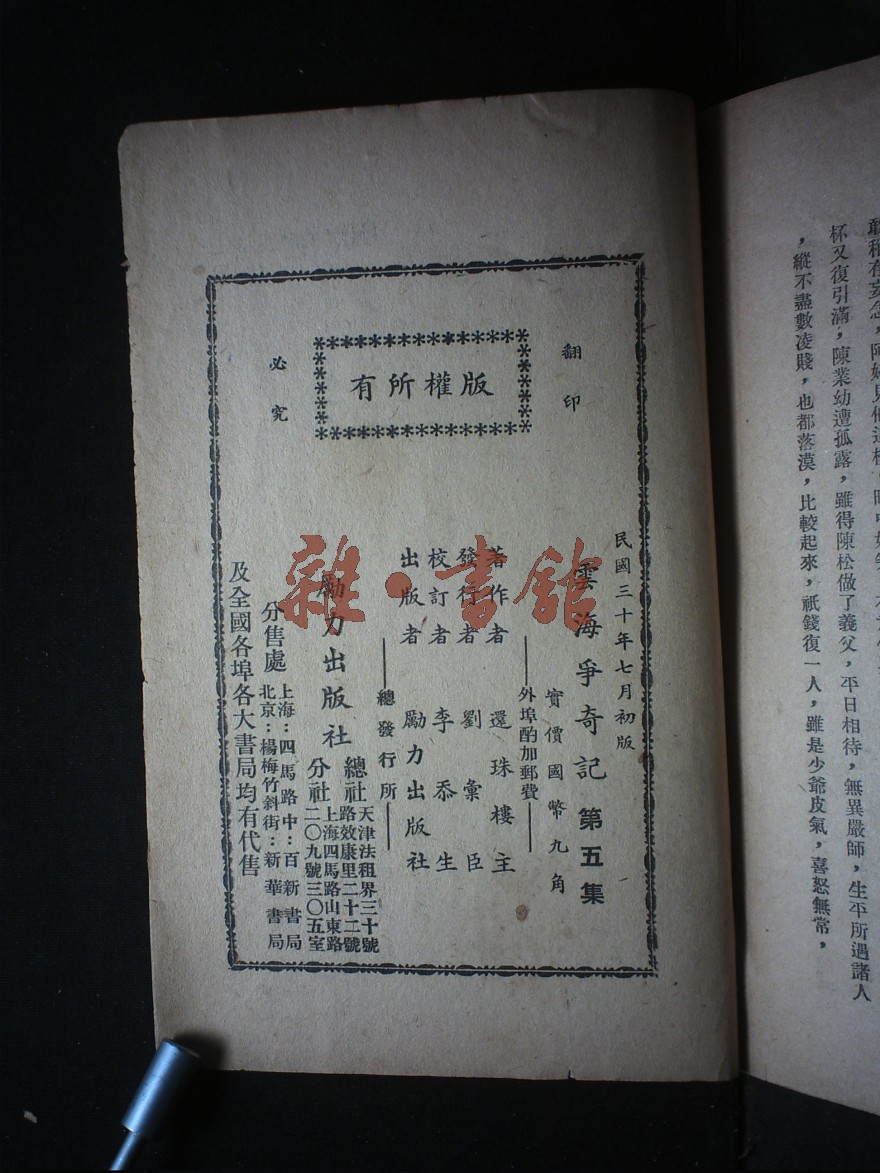 敢稍有妄念，阿
杯又復引滿，陳業幼遭孤露，雖得陳松做了義父，平日相待，無異嚴師，生平所遇諸人
，縱不盡數凌賤，也都落漠，比較起來，祇錢復一人，雖是少爺皮氣，喜怒無常，
翻印
版權所有
必究
民國三十年七月初版
雲海爭奇記 第五集
實價國幣九角
外埠酌加郵費
著作者 還珠樓主
發行者 劉彙臣
校訂者 李忝生
出版者 勵力出版社
總發行所
勵力出版社
總社 天津法租界三十號
路效康里二十二號
分社 上海四馬路山東路
二〇九號三〇五室
分售處
上海：四馬路中：百新書局
北京：楊梅竹斜街：新華書局
及全國各埠各大書局均有代售
雜·書館